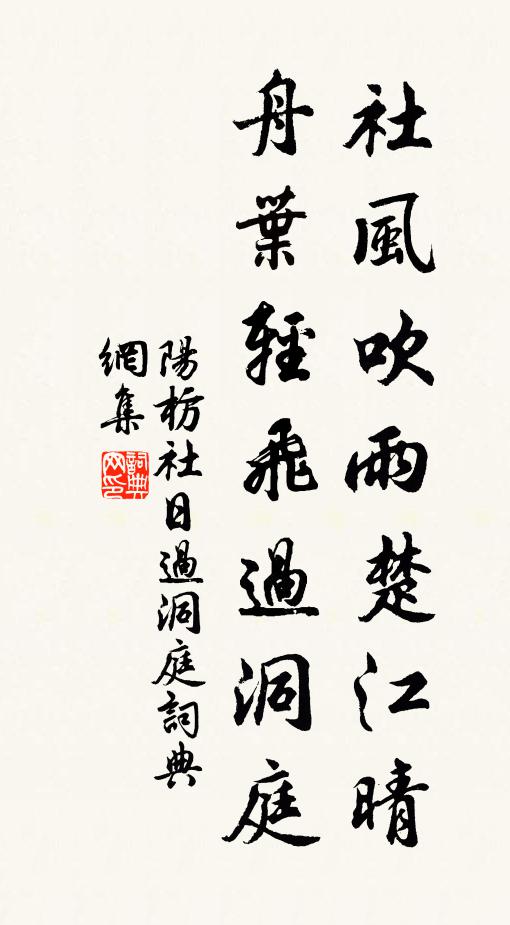 社風吹雨楚江晴
舟葉輕飛過洞庭
陽枋社日過洞庭詞典
網集
詞典
网印